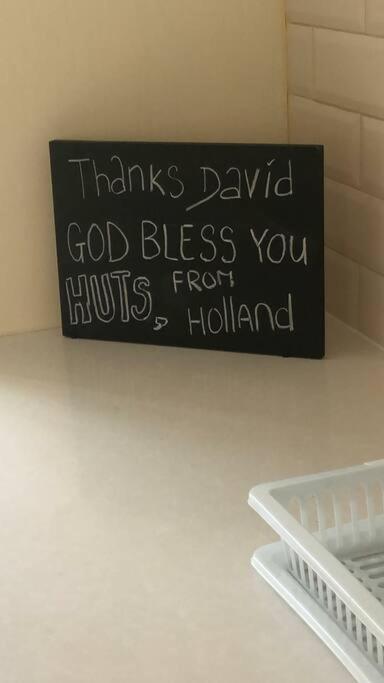 Thanks David
GOD BLESS YOU
HUTS, FROM
HOllAnd